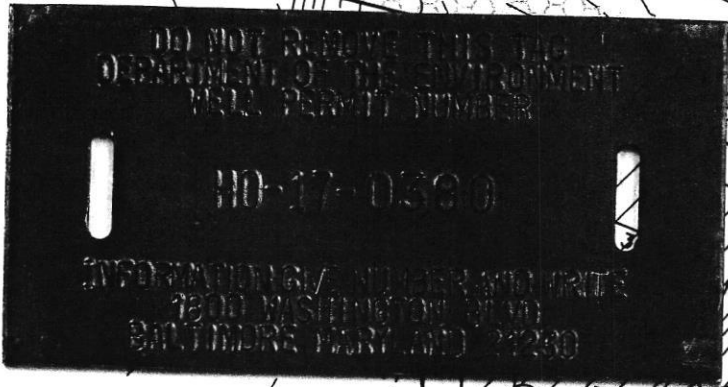 DO NOT REMOVE THIS TAG
DEPARTMENT OF THE ENVIRONMENT
WELL PERMIT NUMBER
HO-17-0380
INFORMATION GIVE NUMBER AND WRITE
1800 WASHINGTON BLVD
BALTIMORE MARYLAND 21230